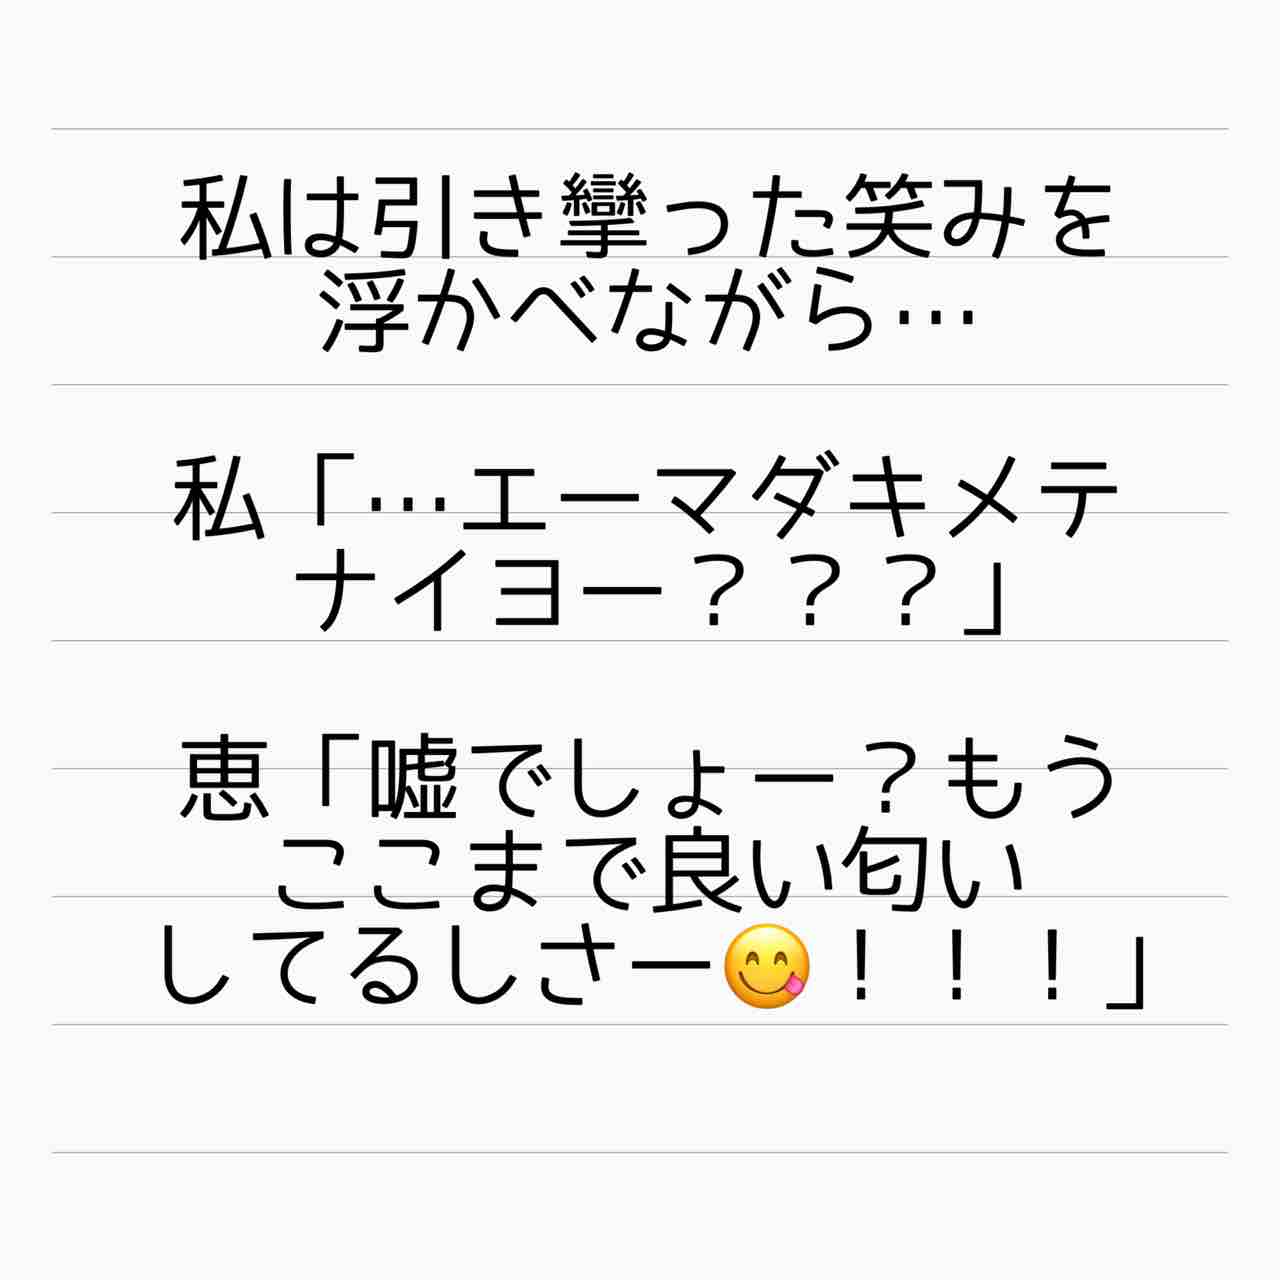 私は引き攣った笑みを
浮かべながら…
私「…エーマダキメテ
ナイヨー？？？」
恵「嘘でしょー？もう
ここまで良い匂い
してるしさー😋！！！」